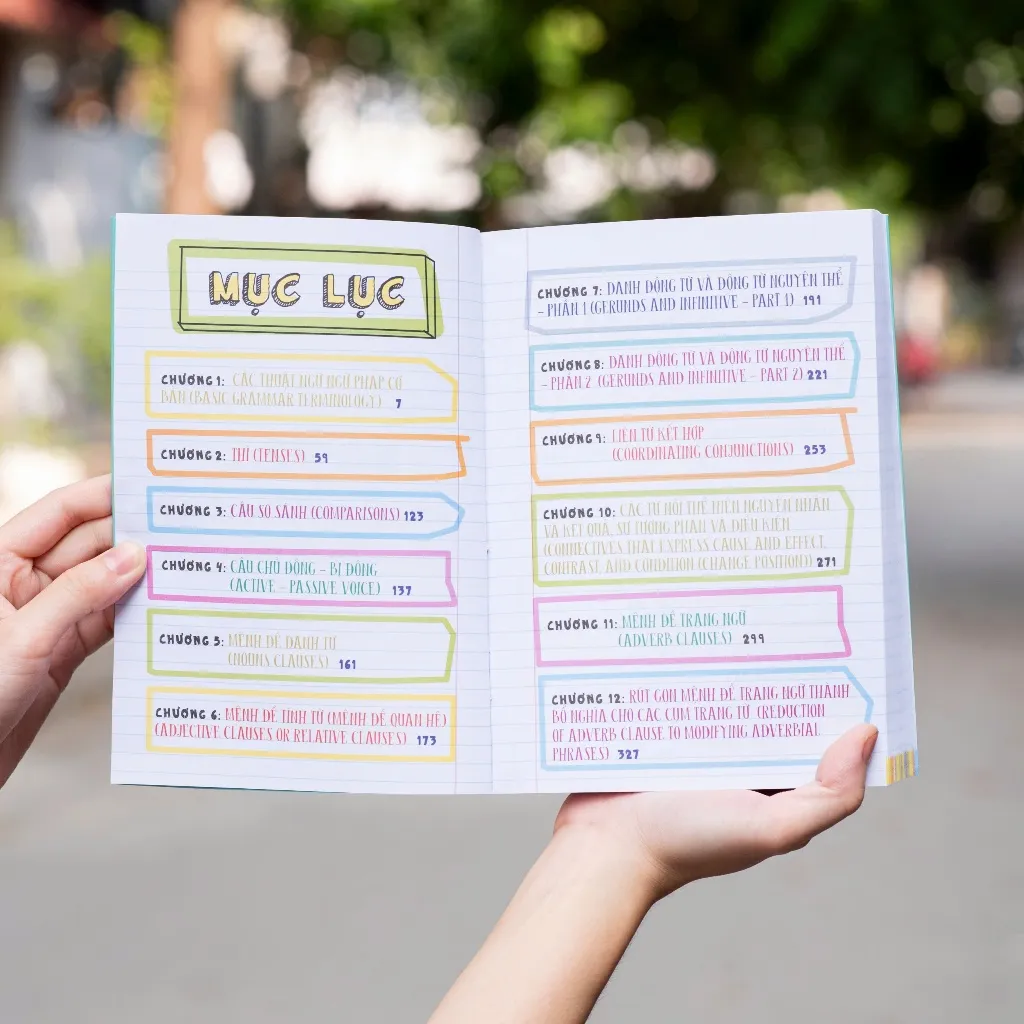 MỤC LỤC
CHƯƠNG 1: CÁC THUẬT NGỮ NGỮ PHÁP CƠ
BẢN (BASIC GRAMMAR TERMINOLOGY) 7
CHƯƠNG 2: THÌ (TENSES) 59
CHƯƠNG 3: CÂU SO SÁNH (COMPARISONS) 123
CHƯƠNG 4: CÂU CHỦ ĐỘNG - BỊ ĐỘNG
(ACTIVE - PASSIVE VOICE) 137
CHƯƠNG 5: MỆNH ĐỀ DANH TỪ
(NOUNS CLAUSES) 161
CHƯƠNG 6: MỆNH ĐỀ TÍNH TỪ (MỆNH ĐỀ QUAN HỆ)
(ADJECTIVE CLAUSES OR RELATIVE CLAUSES) 173
CHƯƠNG 7: DANH ĐỘNG TỪ VÀ ĐỘNG TỪ NGUYÊN THỂ
- PHẦN 1 (GERUNDS AND INFINITIVE - PART 1) 191
CHƯƠNG 8: DANH ĐỘNG TỪ VÀ ĐỘNG TỪ NGUYÊN THỂ
- PHẦN 2 (GERUNDS AND INFINITIVE - PART 2) 221
CHƯƠNG 9: LIÊN TỪ KẾT HỢP
(COORDINATING CONJUNCTIONS) 253
CHƯƠNG 10: CÁC TỪ NỐI THỂ HIỆN NGUYÊN NHÂN
VÀ KẾT QUẢ, SỰ TƯƠNG PHẢN VÀ ĐIỀU KIỆN
(CONNECTIVES THAT EXPRESS CAUSE AND EFFECT,
CONTRAST, AND CONDITION (CHANGE POSITION)) 271
CHƯƠNG 11: MỆNH ĐỀ TRẠNG NGỮ
(ADVERB CLAUSES) 299
CHƯƠNG 12: RÚT GỌN MỆNH ĐỀ TRẠNG NGỮ THÀNH
BỔ NGHĨA CHO CÁC CỤM TRẠNG TỪ (REDUCTION
OF ADVERB CLAUSE TO MODIFYING ADVERBIAL
PHRASES) 327